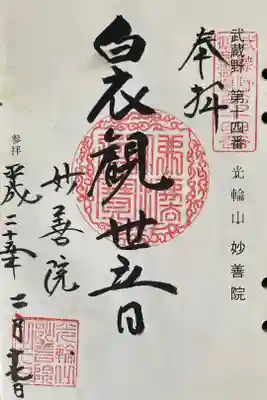 武蔵野 第十四番 光輪山 妙善院
奉拝
白衣観世音
妙善院
参拝
平成二十五年二月十七日